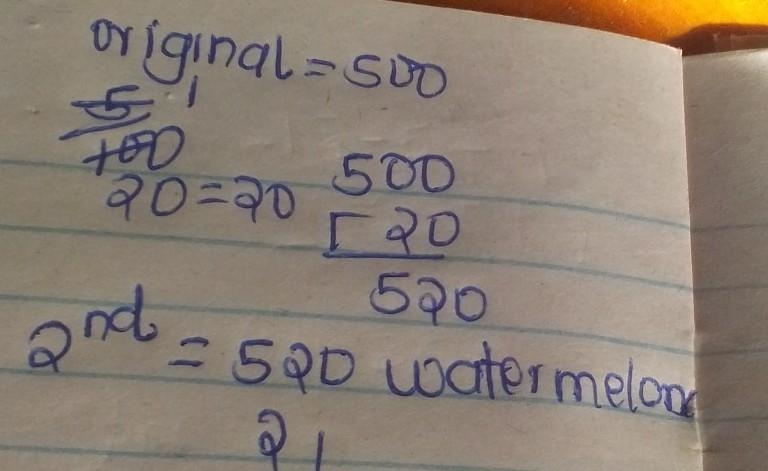 original = 500
5 1
100
20 = 20
500
20
520
2nd = 520 watermelon
2 1